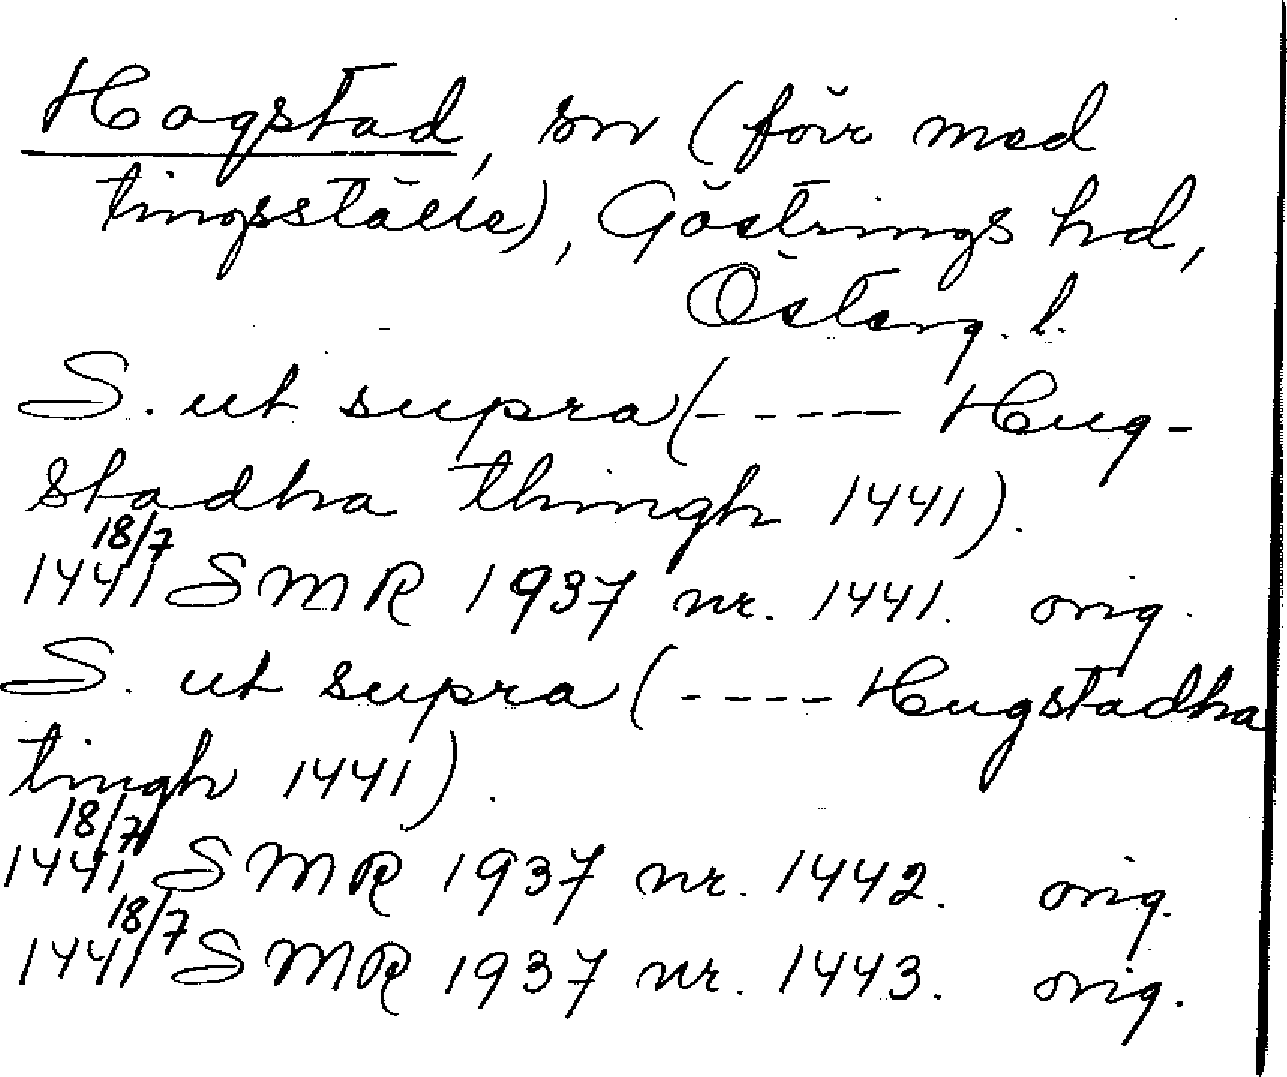 Hogstad, sn (förr med
tingsställe), Göstrings hd,
Österg. l.
S. ut supra (----- Hug-
stadha thingh 1441).
1441 18/7 SMR 1937 nr. 1441. orig.
S. ut supra (---- Hugstadha
tingh 1441).
1441 18/7 SMR 1937 nr. 1442. orig.
1441 18/7 SMR 1937 nr. 1443. orig.